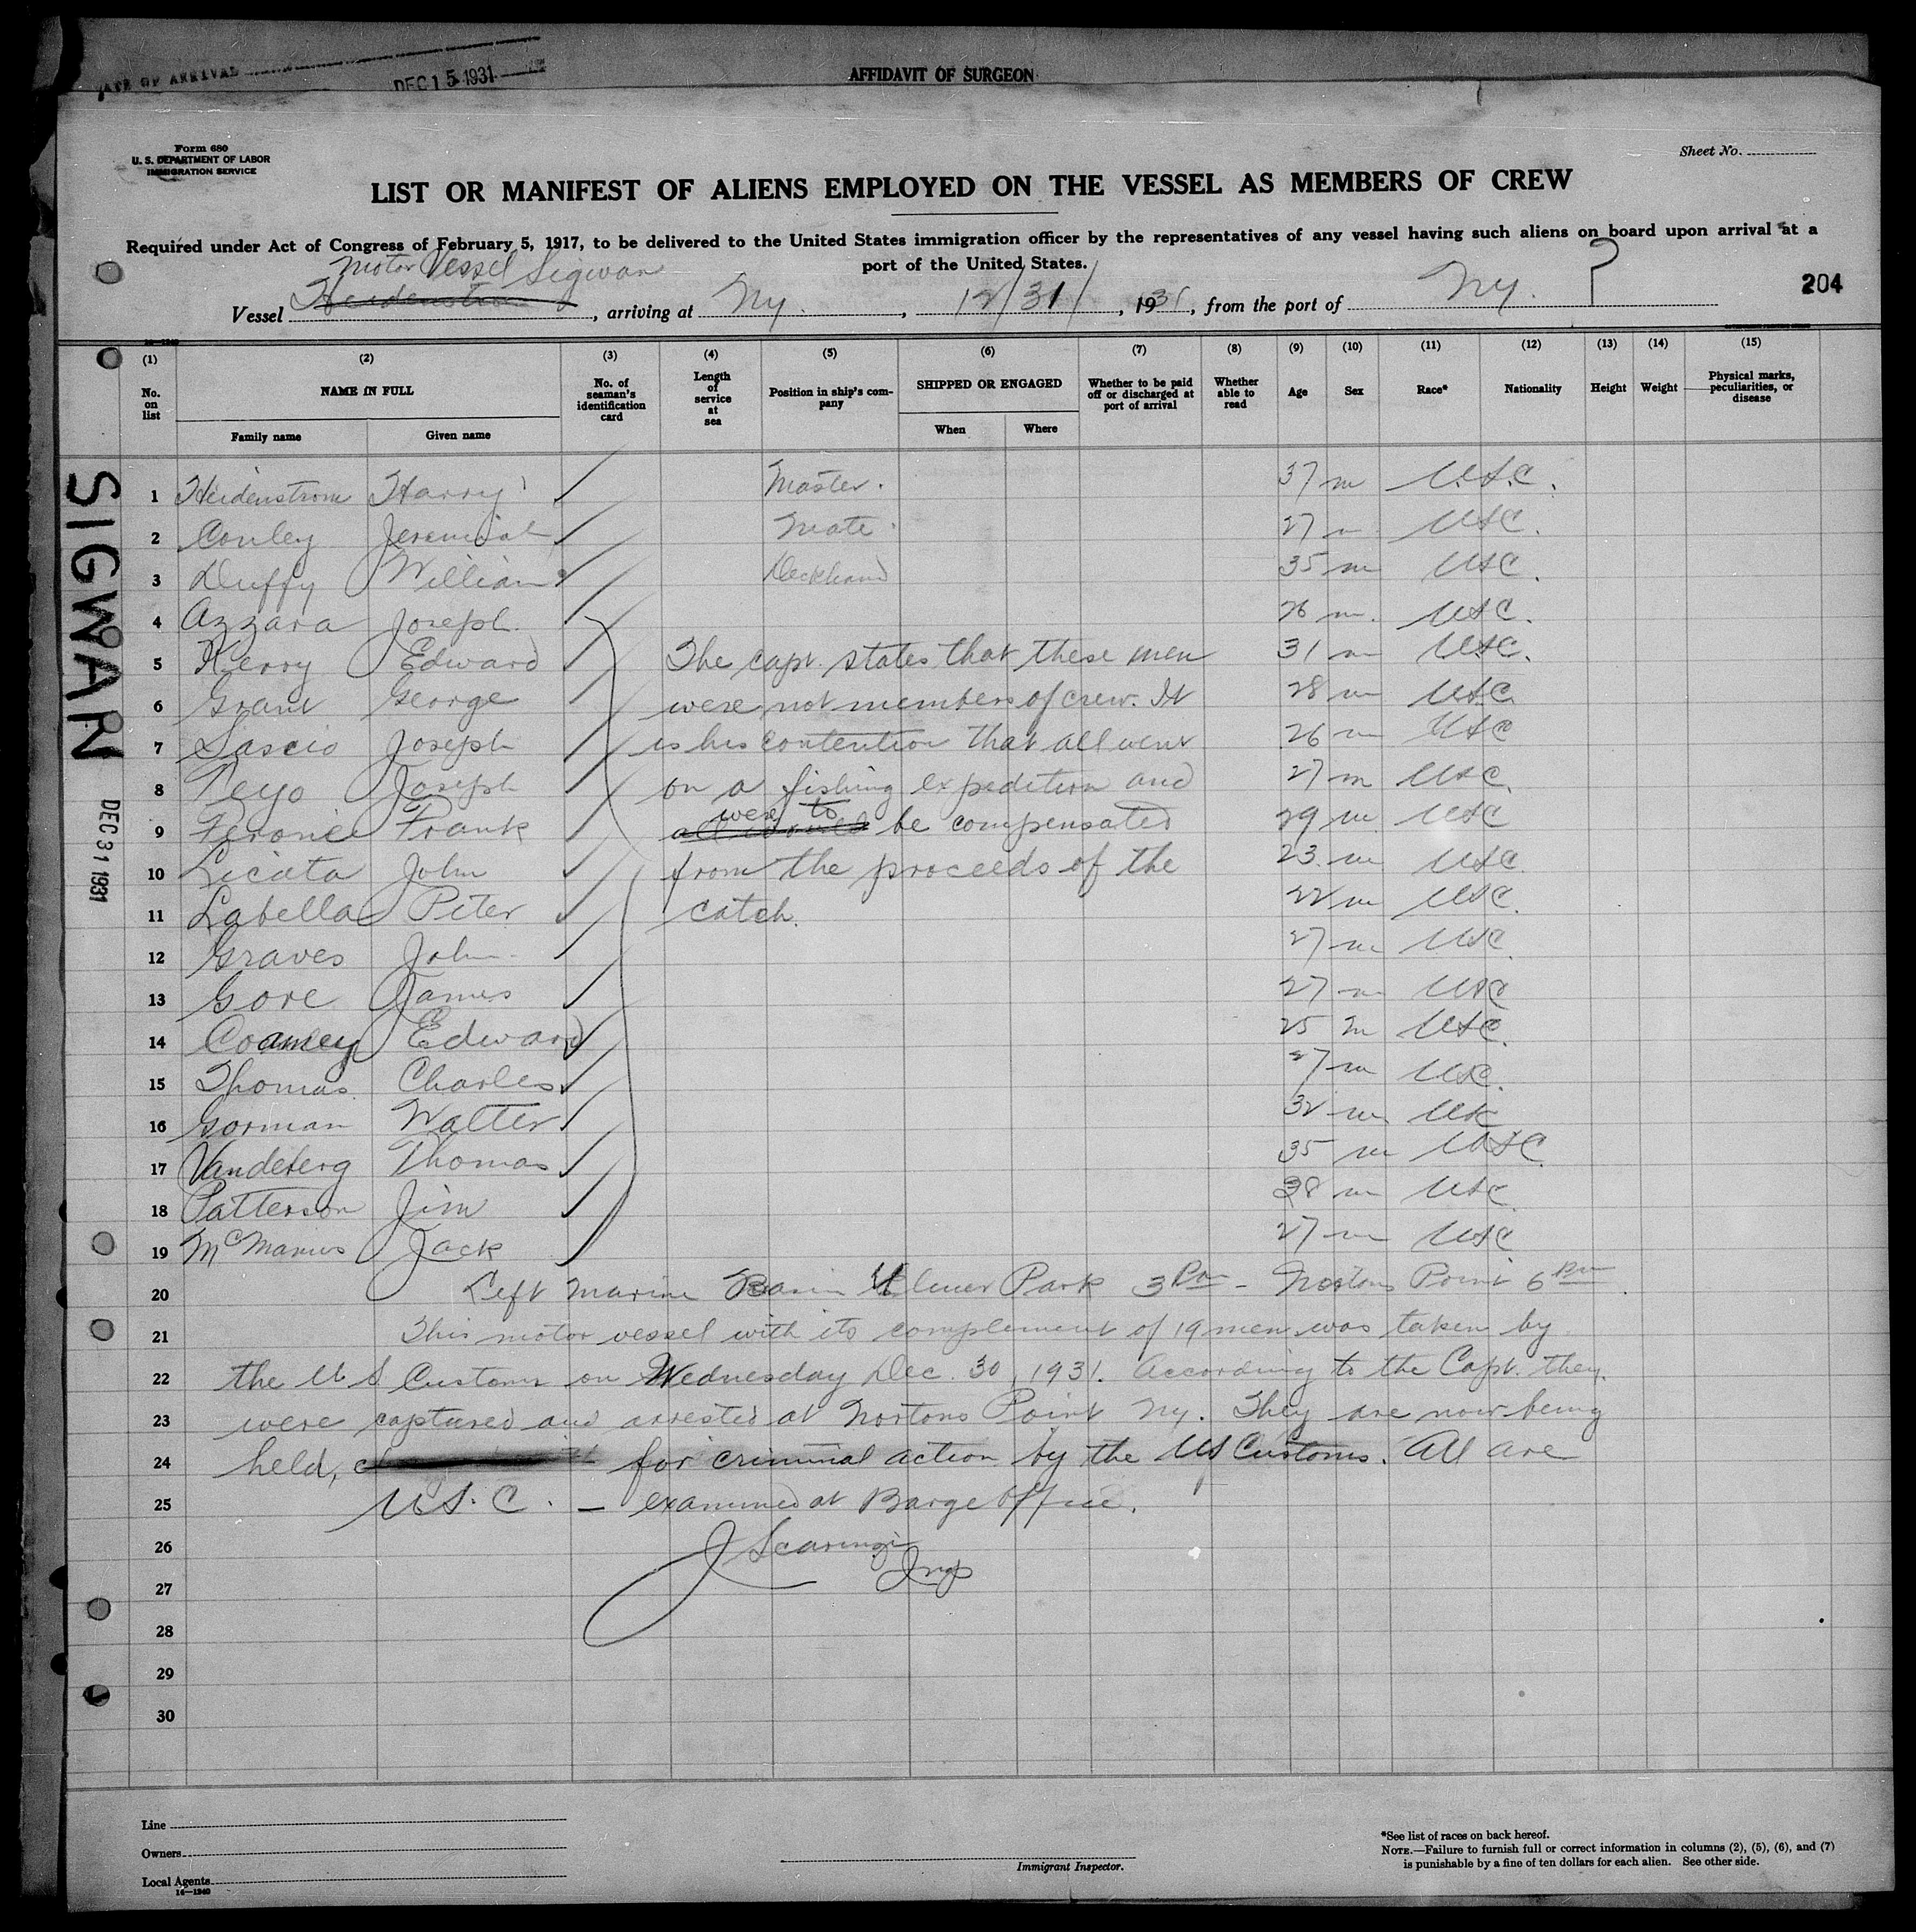 DATE OF ARRIVAL DEC 15 1931
AFFIDAVIT OF SURGEON
Form 680
U. S. DEPARTMENT OF LABOR
IMMIGRATION SERVICE
Sheet No.
LIST OR MANIFEST OF ALIENS EMPLOYED ON THE VESSEL AS MEMBERS OF CREW
Required under Act of Congress of February 5, 1917, to be delivered to the United States immigration officer by the representatives of any vessel having such aliens on board upon arrival at a
port of the United States.
Motor Vessel Sigwan
Vessel Heidenstrom, arriving at Ny., 12/31/, 1931, from the port of Ny. ?
204
(1) (2) (3) (4) (5) (6) (7) (8) (9) (10) (11) (12) (13) (14) (15)
No. on list NAME IN FULL Family name Given name No. of seaman's identification card Length of service at sea Position in ship's company SHIPPED OR ENGAGED When Where Whether to be paid off or discharged at port of arrival Whether able to read Age Sex Race* Nationality Height Weight Physical marks, peculiarities, or disease
SIGWAN
DEC 31 1931
1 Heidenstrom Harry Master. 37 m U.S.C.
2 Conley Jeremiah Mate. 27 m USC.
3 Duffy William Deckhand 35 m USC.
4 Azzara Joseph. 26 m. USC.
5 Kerry Edward The capt. states that these men 31 m USC.
6 Grant George were not members of crew. It 28 m USC.
7 Sascio Joseph is his contention that all went 26 m USC
8 Peyo Joseph on a fishing expedition and 27 m USC.
9 Frank were to be compensated 29 m USC
10 Licata John from the proceeds of the 23 m USC.
11 Labella Peter catch. 22 m USC.
12 Graves John 27 m USC
13 Gore James 27 m USC
14 Edward 25 m USC.
15 Thomas Charles 27 m USC.
16 Gorman Walter 32 m USC
17 Vandeberg Thomas 35 m USC
18 Patterson Jim 38 m USC
19 McManus Jack 27 m USC
20 Left Marine Basin Ulmer Park 3 Pm - Nortons Point 6 Pm.
21 This motor vessel with its complement of 19 men was taken by
22 the U S Customs on Wednesday Dec. 30, 1931. According to the Capt. they
23 were captured and arrested at Nortons Point Ny. They are now being
24 held, for criminal action by the US Customs. All are
25 U.S.C. - examined at Barge Office.
26 J Scaringi
27 Insp
28
29
30
Line
Owners
Local Agents
16—1940
Immigrant Inspector.
*See list of races on back hereof.
NOTE.—Failure to furnish full or correct information in columns (2), (5), (6), and (7)
is punishable by a fine of ten dollars for each alien. See other side.